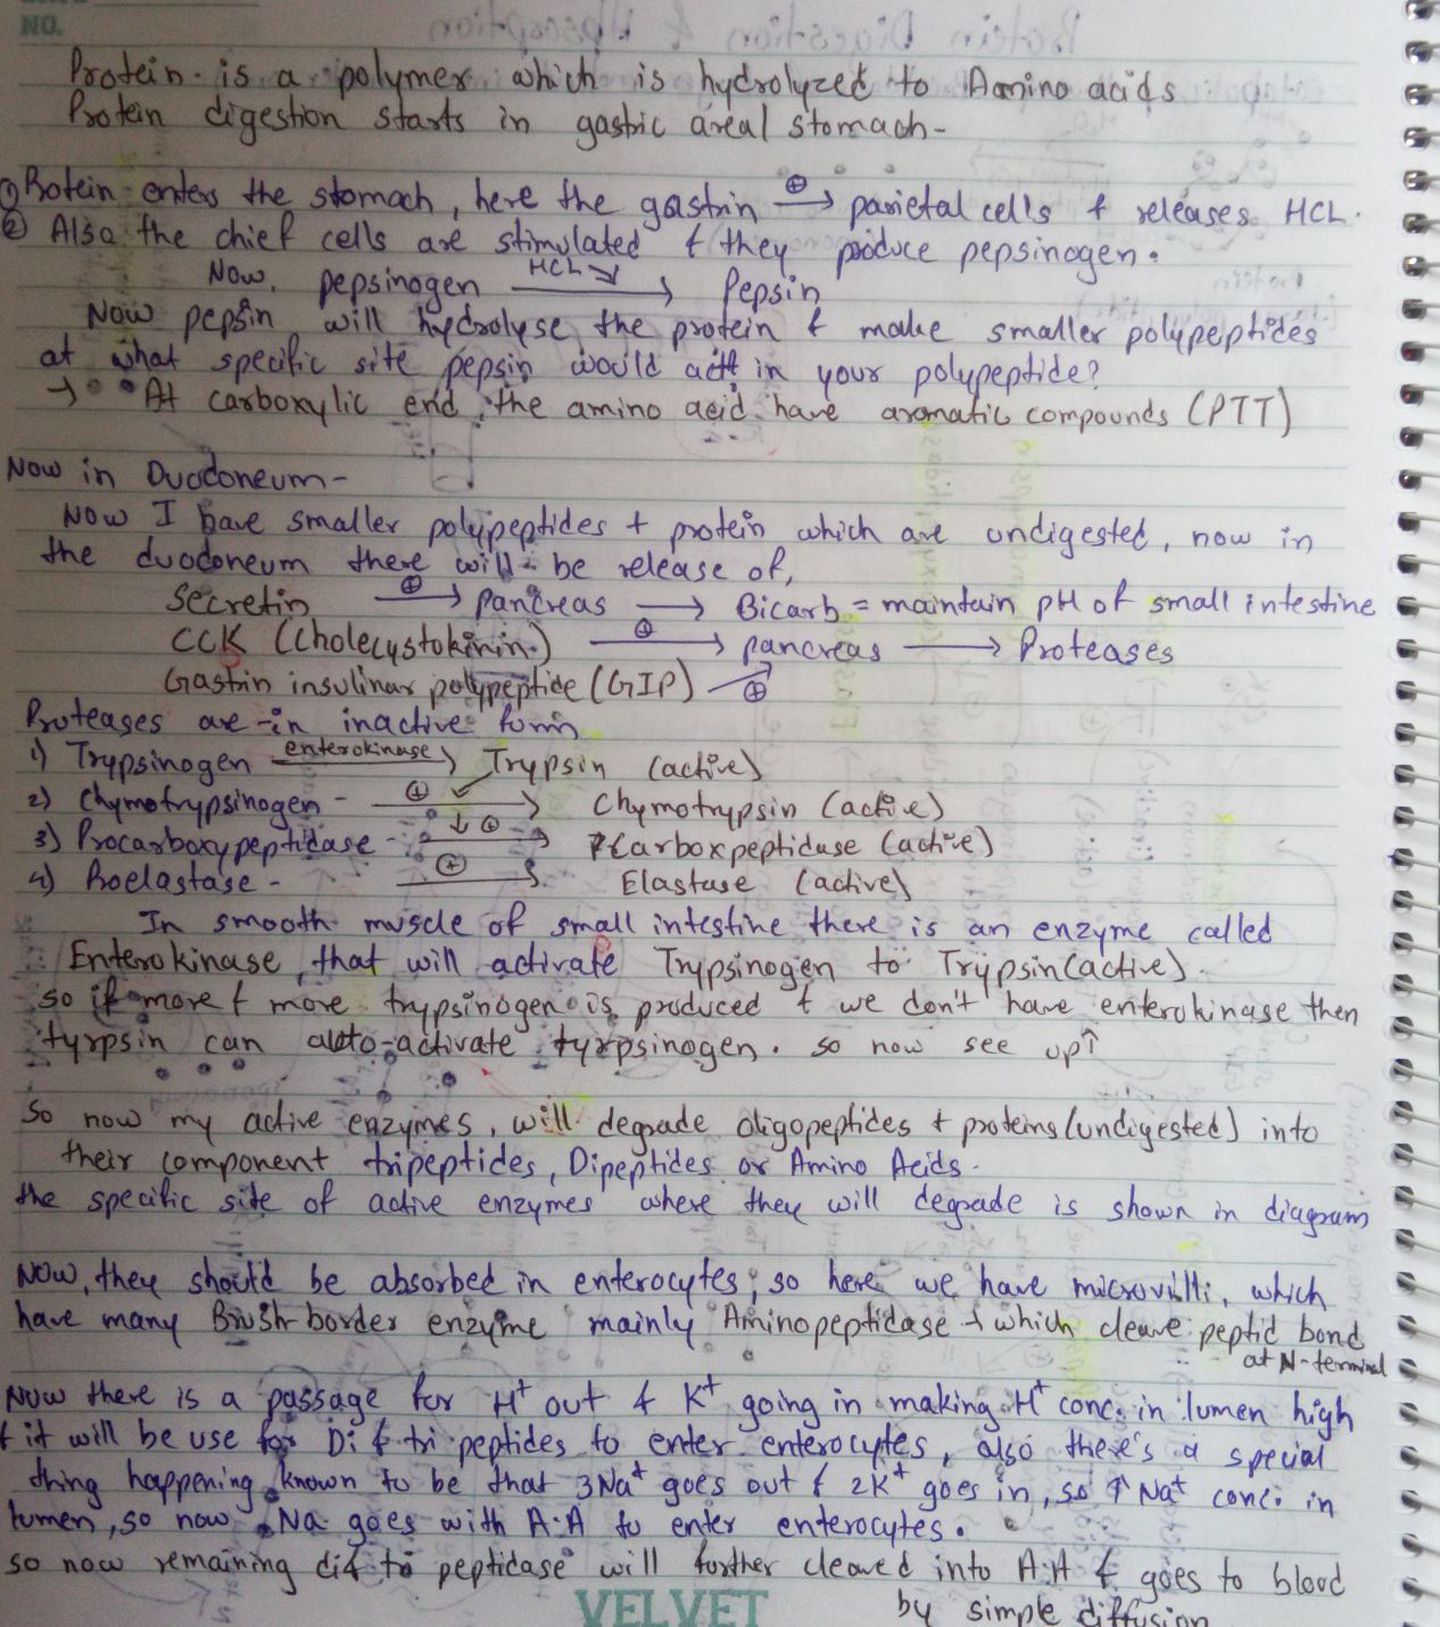 NO.
Protein is a polymer which is hydrolyzed to Amino acids
Protein digestion starts in gastric area/ stomach-
① Protein enters the stomach, here the gastrin ⊕→ parietal cells & releases HCL.
② Also the chief cells are stimulated & they produce pepsinogen.
Now, pepsinogen HCL→ Pepsin
Now pepsin will hydrolyse the protein & make smaller polypeptides
at what specific site pepsin would act in your polypeptide?
→ • At carboxylic end, the amino acid have aromatic compounds (PTT)
Now in Duodoneum-
Now I have smaller polypeptides + protein which are undigested, now in
the duodoneum there will be release of,
Secretin ⊕→ pancreas → Bicarb = maintain pH of small intestine
CCK (Cholecystokinin) ⊕→ pancreas → Proteases
Gastrin insulinar polypeptide (GIP) ⊕→
Proteases are in inactive form
1) Trypsinogen enterokinase→ Trypsin (active)
2) Chymotrypsinogen - ⊕→ Chymotrypsin (active)
3) Procarboxypeptidase - ↓⊕→ Carboxpeptidase (active)
4) Proelastase - ⊕→ Elastase (active)
In smooth muscle of small intestine there is an enzyme called
Enterokinase, that will activate Trypsinogen to Trypsin(active).
so if more & more trypsinogen is produced & we don't have enterokinase then
tyrpsin can auto-activate tyrpsinogen. so now see up↑
So now my active enzymes, will degrade oligopeptides + proteins(undigested) into
their component tripeptides, Dipeptides or Amino Acids.
the specific site of active enzymes where they will degrade is shown in diagram
Now, they should be absorbed in enterocytes, so here we have microvilli, which
have many Brush border enzyme mainly Aminopeptidase → which cleave peptid bond
at N-terminal
Now there is a passage for H⁺ out & K⁺ going in making H⁺ conc. in lumen high
& it will be use for Di & tri peptides to enter enterocytes, also there's a special
thing happening known to be that 3Na⁺ goes out & 2K⁺ goes in, so ↑Na⁺ conc. in
lumen, so now Na goes with A.A to enter enterocytes.
so now remaining di & tri peptidase will further cleaved into A.A & goes to blood
by simple diffusion
VELVET